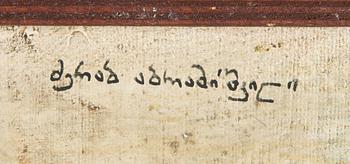 მერაბ აბრამიშვილი